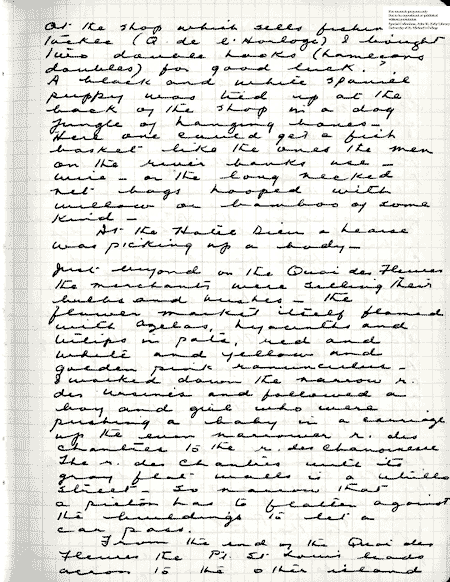 At the shop which sells fishing
tackle (Q. de l'Horloge) I bought
two double hooks (hameçons
doubles) for good luck.
A black and white Spaniel
puppy was tied up at the
back of the shop in a dog
jungle of hanging canes –
Here one could get a fish
basket like the ones the men
on the river banks use –
wire – or the long necked
net bags hooped with
willow or bamboo of some
kind –
At the Hotel Dieu a hearse
was picking up a body –
Just beyond on the Quai des Fleurs
the merchants were selling their
bulbs and bushes – the
flower market itself flamed
with Azelas, hyacinths and
tulips in pots, red and
white and yellow and
golden pink ranunculus –
I walked down the narrow r.
des Ursins and followed a
boy and girl who were
pushing a baby in a carriage
up the even narrower r. des
Chantres to the r. des Chanoinesse
The r. des Chantres with its
gray flat walls is a
street – So narrow that
a pieton has to flatten against
the buildings to let a
car pass.
From the end of the Quai des
Fleurs the Pt. St Louis leads
across to the other island